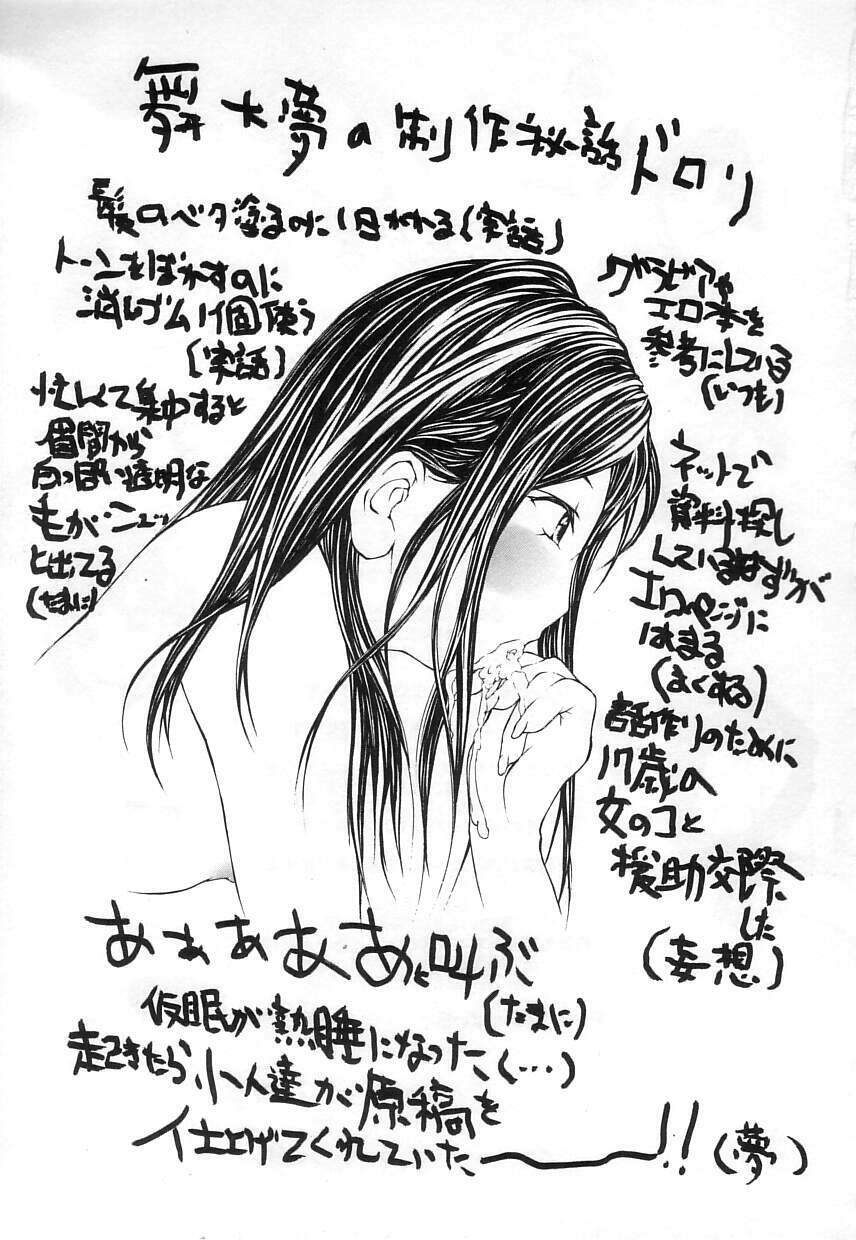 舞大夢の制作秘話ドロリ
髪のベタ塗るのに1日かかる(実話)
トーンをぼかすのに
消しゴム1個使う
(実話)
忙しくて集中すると
眉間から
白っぽい透明な
毛がニュッ
と出てる
(たまに)
グラビアや
エロ本を
参考にしている
(いつも)
ネットで
資料探し
しているはずが
エロページに
はまる
(よくある)
話作りのために
17歳の
女のコと
援助交際
した
(妄想)
あぁぁぁあと叫ぶ
(たまに)
仮眠が熱睡になった(…)
起きたら小人達が原稿を
仕上げてくれていたー!!(夢)